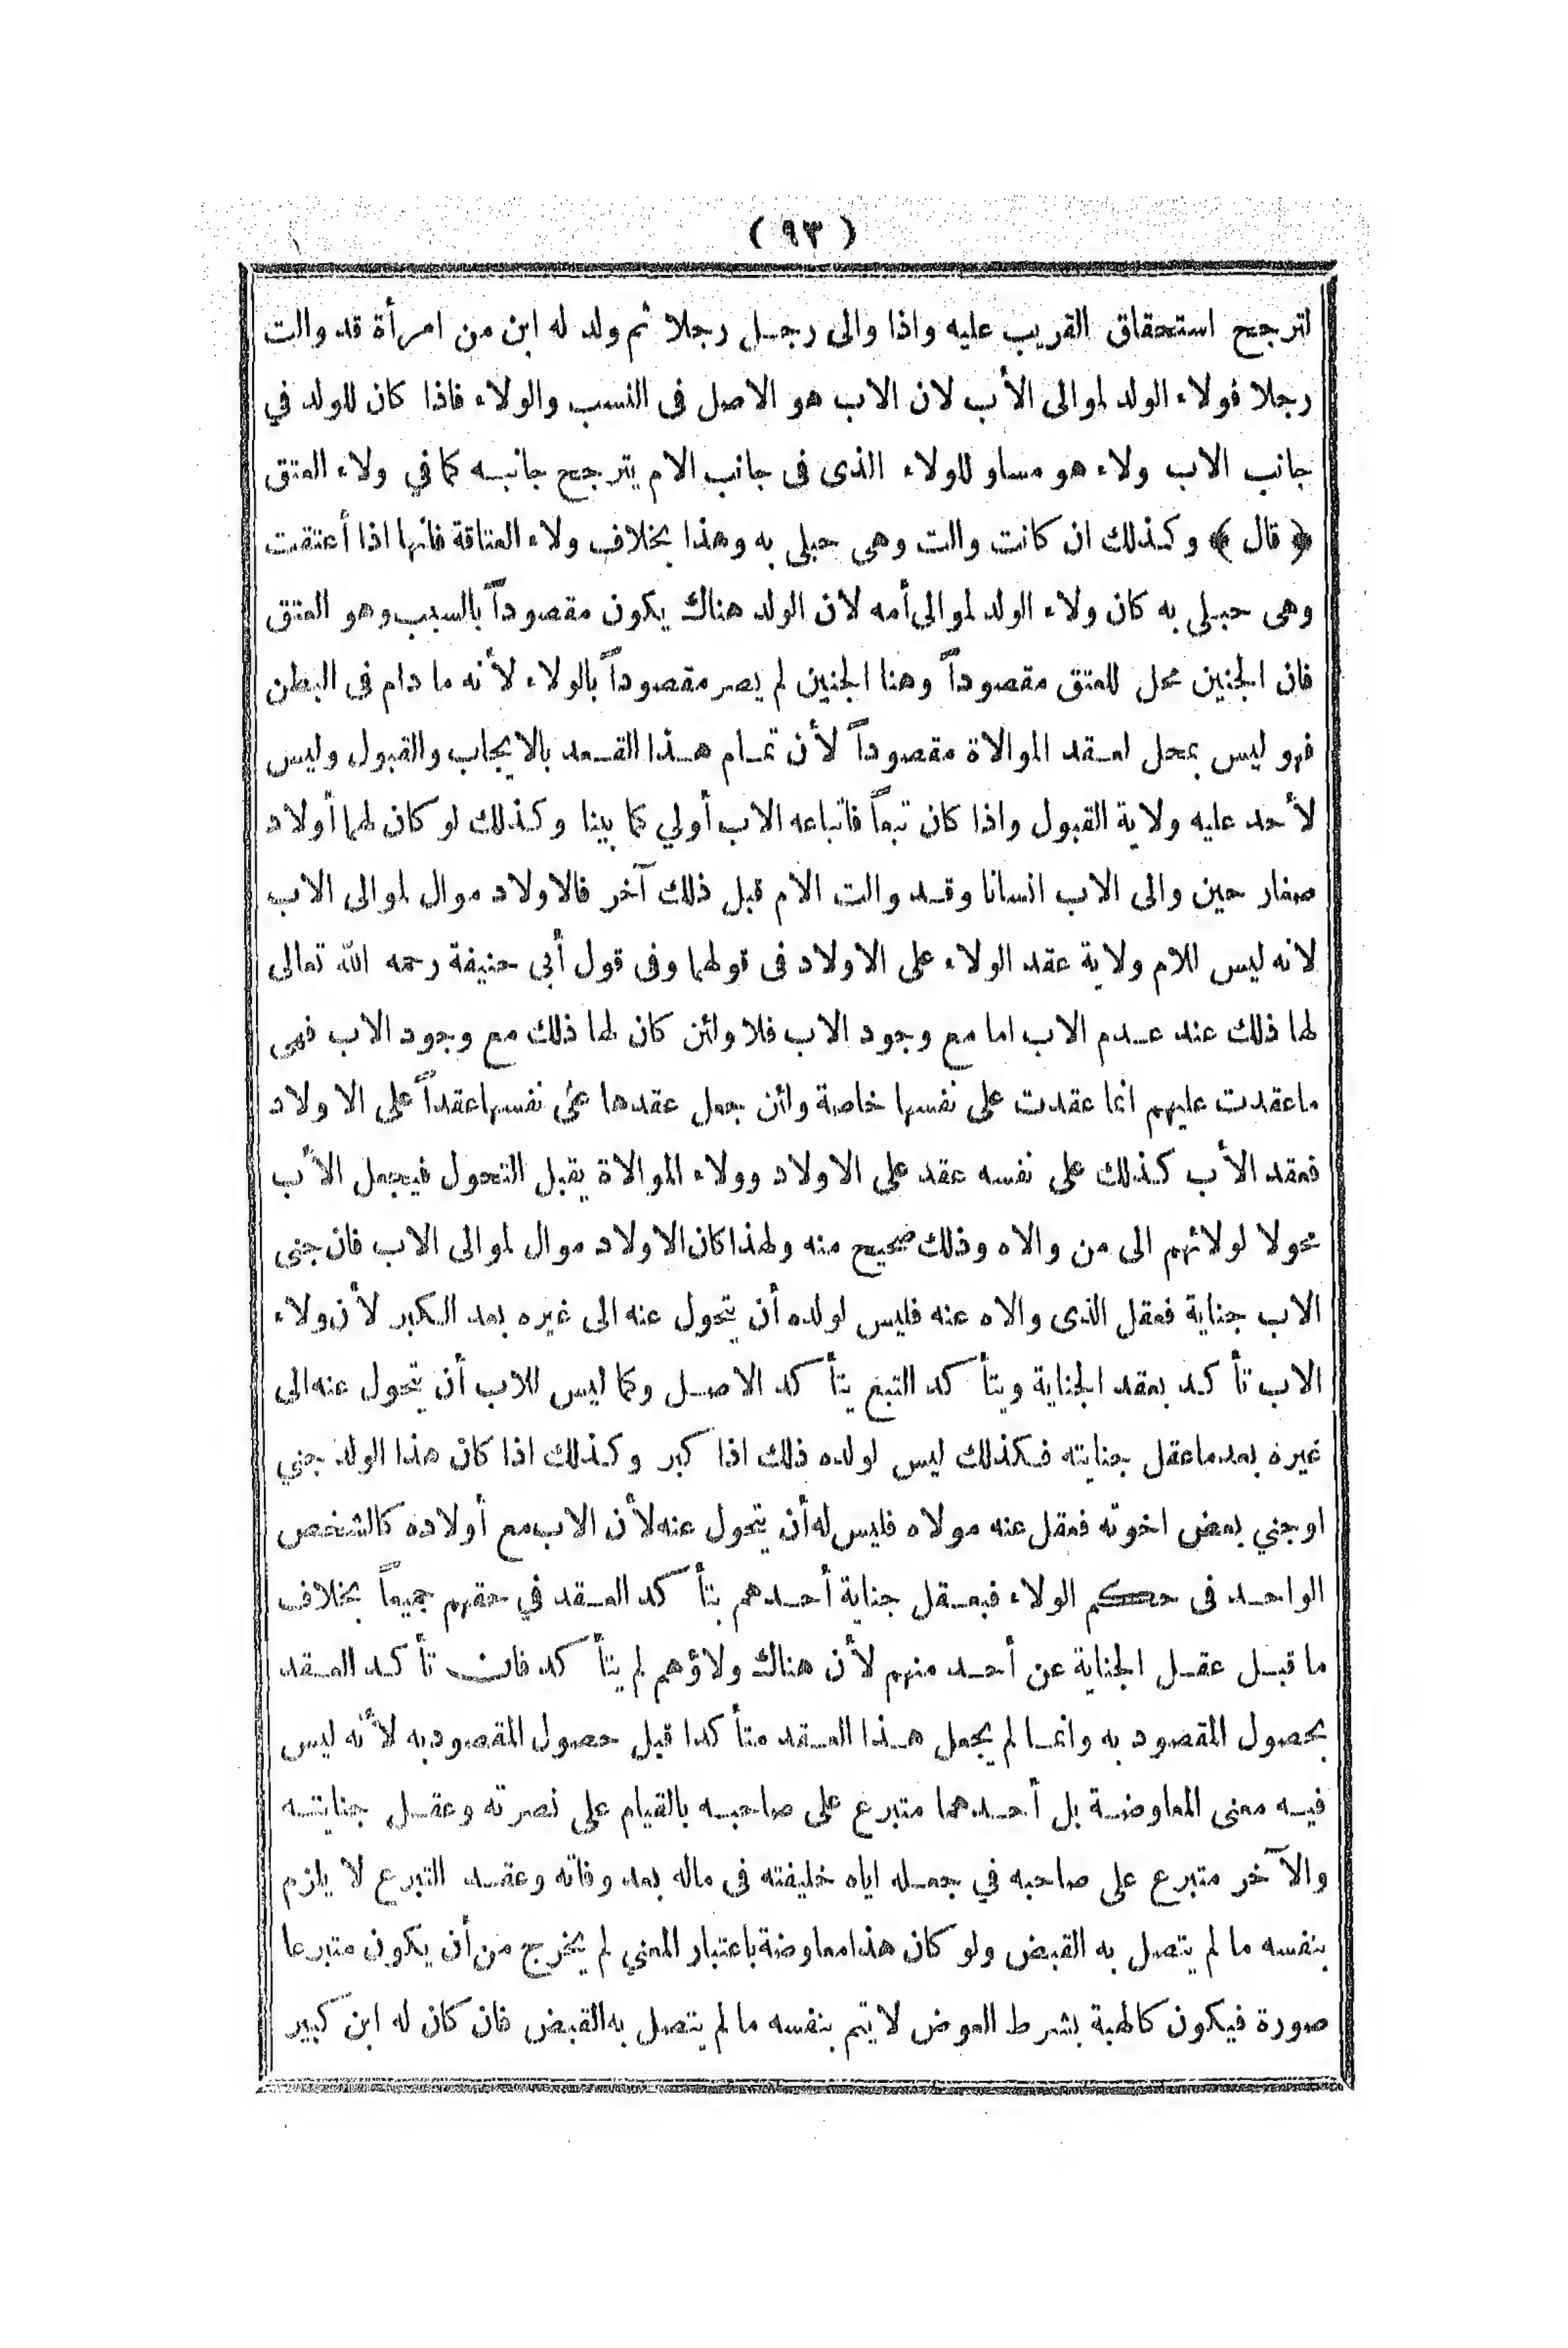 ( ٩٣ )
لترجح استحقاق القريب عليه واذا والى رجل رجلا ثم ولد له ابن من امرأة قد والت
رجلا فولاء الولد لموالى الأب لان الاب هو الاصل فى النسب والولاء فاذا كان للولد في
جانب الاب ولاء هو مساو للولاء الذى فى جانب الام يترجح جانبه كما في ولاء العتق
﴿ قال ﴾ وكذلك ان كانت والت وهى حبلى به وهذا بخلاف ولاء العتاقة فانها اذا أعتقت
وهى حبلى به كان ولاء الولد لموالى أمه لان الولد هناك يكون مقصوداً بالسبب وهو العتق
فان الجنين محل للعتق مقصوداً وهنا الجنين لم يصر مقصوداً بالولاء لأنه ما دام فى البطن
فهو ليس بمحل لعقد الموالاة مقصوداً لأن تمام هذا العقد بالايجاب والقبول وليس
لأحد عليه ولاية القبول واذا كان تبعاً فاتباعه الاب أولي كما بينا وكذلك لو كان لهما أولاد
صغار حين والى الاب انسانا وقد والت الام قبل ذلك آخر فالاولاد موال لموالى الاب
لانه ليس للام ولاية عقد الولاء على الاولاد فى قولهما وفى قول أبي حنيفة رحمه الله تعالى
لها ذلك عند عدم الاب اما مع وجود الاب فلا ولئن كان لها ذلك مع وجود الاب فهى
ماعقدت عليهم انما عقدت على نفسها خاصة ولئن جعل عقدها على نفسها عقداً على الاولاد
فعقد الأب كذلك على نفسه عقد على الاولاد وولاء الموالاة يقبل التحول فيجعل الأب
محولا لولائهم الى من والاه وذلك صحيح منه ولهذا كان الاولاد موال لموالى الاب فان جنى
الاب جناية فعقل الذى والاه عنه فليس لولده أن يتحول عنه الى غيره بعد الكبر لأن ولاء
الاب تأكد بعقد الجناية ويتأكد التبع يتأكد الاصل وكما ليس للاب أن يتحول عنه الى
غيره بعد ما عقل جنايته فكذلك ليس لولده ذلك اذا كبر وكذلك اذا كان هذا الولد جني
او جني بعض اخوته فعقل عنه مولاه فليس له أن يتحول عنه لأن الاب مع أولاده كالشخص
الواحد فى حكم الولاء فبعقل جناية أحدهم يتأكد العقد في حقهم جميعاً بخلاف
ما قبل عقل الجناية عن أحد منهم لأن هناك ولاؤهم لم يتأكد فان تأكد العقد
بحصول المقصود به وانما لم يجعل هذا العقد متأكدا قبل حصول المقصود به لأنه ليس
فيه معنى المعاوضة بل أحدهما متبرع على صاحبه بالقيام على نصرته وعقل جنايته
والآخر متبرع على صاحبه في جعله اياه خليفته فى ماله بعد وفاته وعقد التبرع لا يلزم
بنفسه ما لم يتصل به القبض ولو كان هذا معاوضة باعتبار المعني لم يخرج من أن يكون متبرعا
صورة فيكون كالهبة بشرط العوض لا يتم بنفسه ما لم يتصل به القبض فان كان له ابن كبير